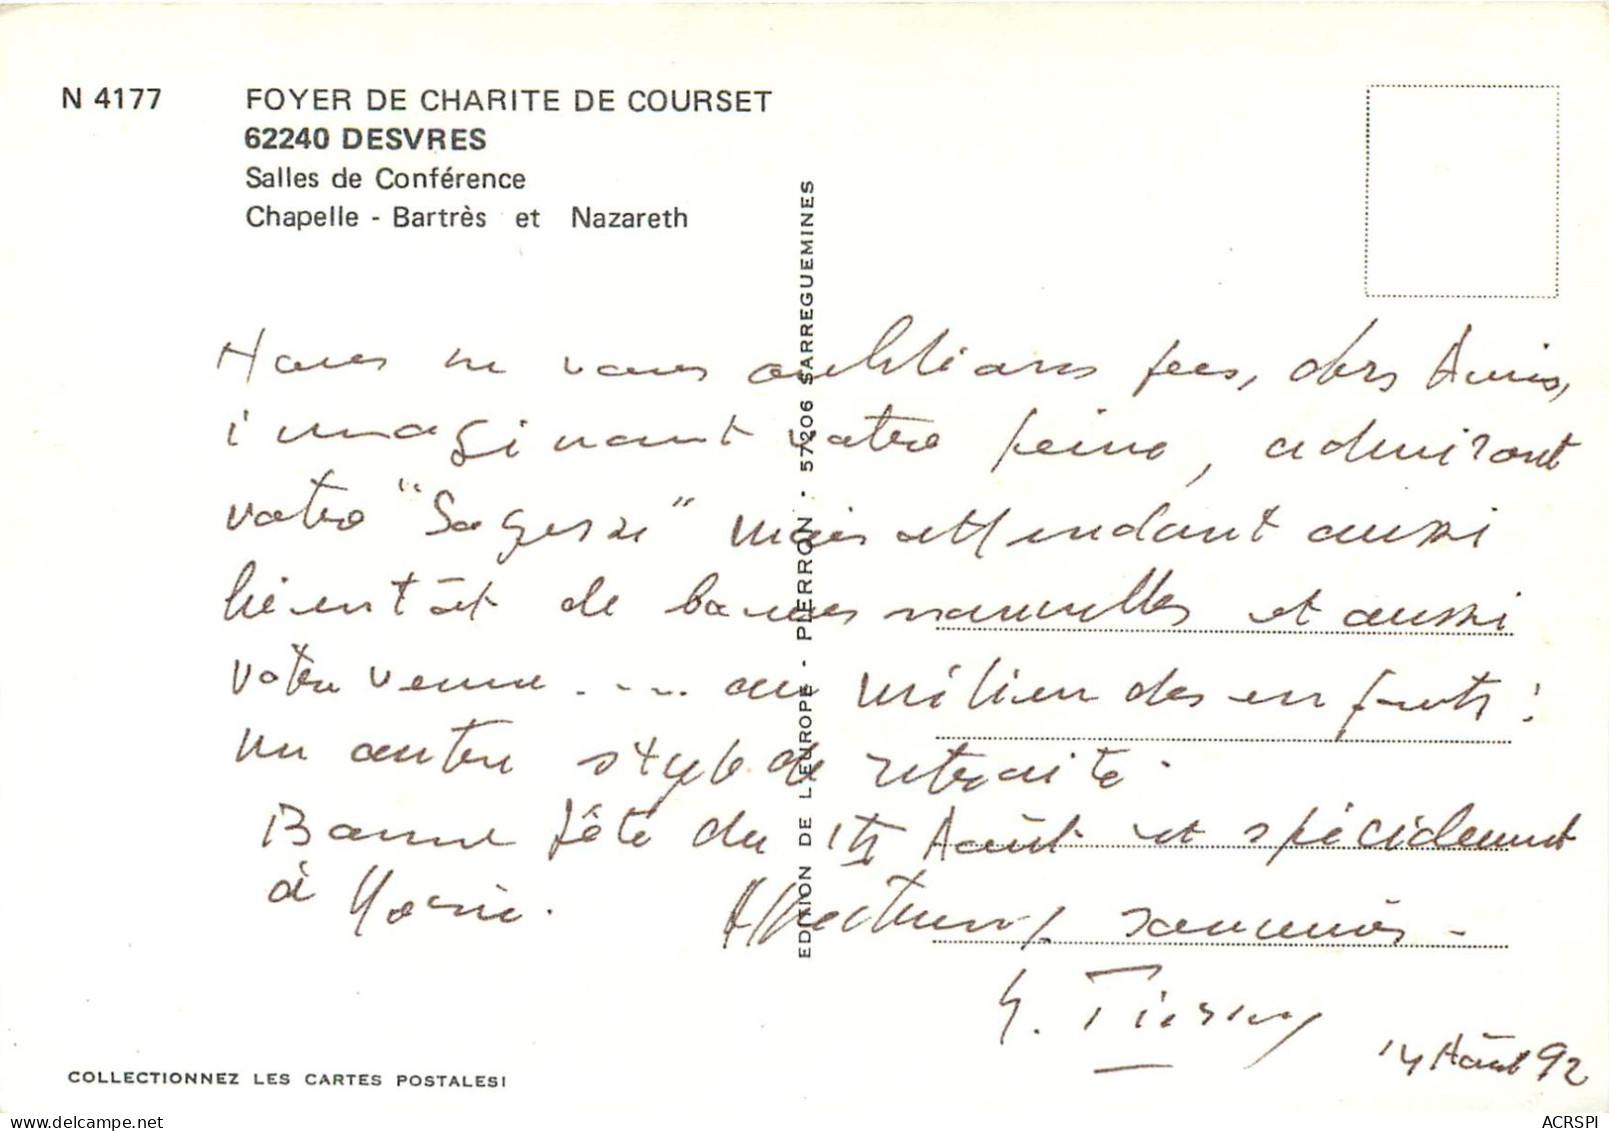 N 4177
FOYER DE CHARITE DE COURSET
62240 DESVRES
Salles de Conférence
Chapelle - Bartrès et Nazareth
EDITION DE L'EUROPE - PIERRON - 57206 SARREGUEMINES
Nous ne vous oublions pas, chers Amis,
imaginant votre peine, admirant
votre "Sagesse" mais attendant aussi
bientôt de bonnes nouvelles et aussi
votre venue ..... au milieu des enfants !
un autre style de retraite.
Bonne fête du 15 Août et spécialement
à Marie. Affectueux souvenirs -
14 Août 92
COLLECTIONNEZ LES CARTES POSTALES!
ACRSPI